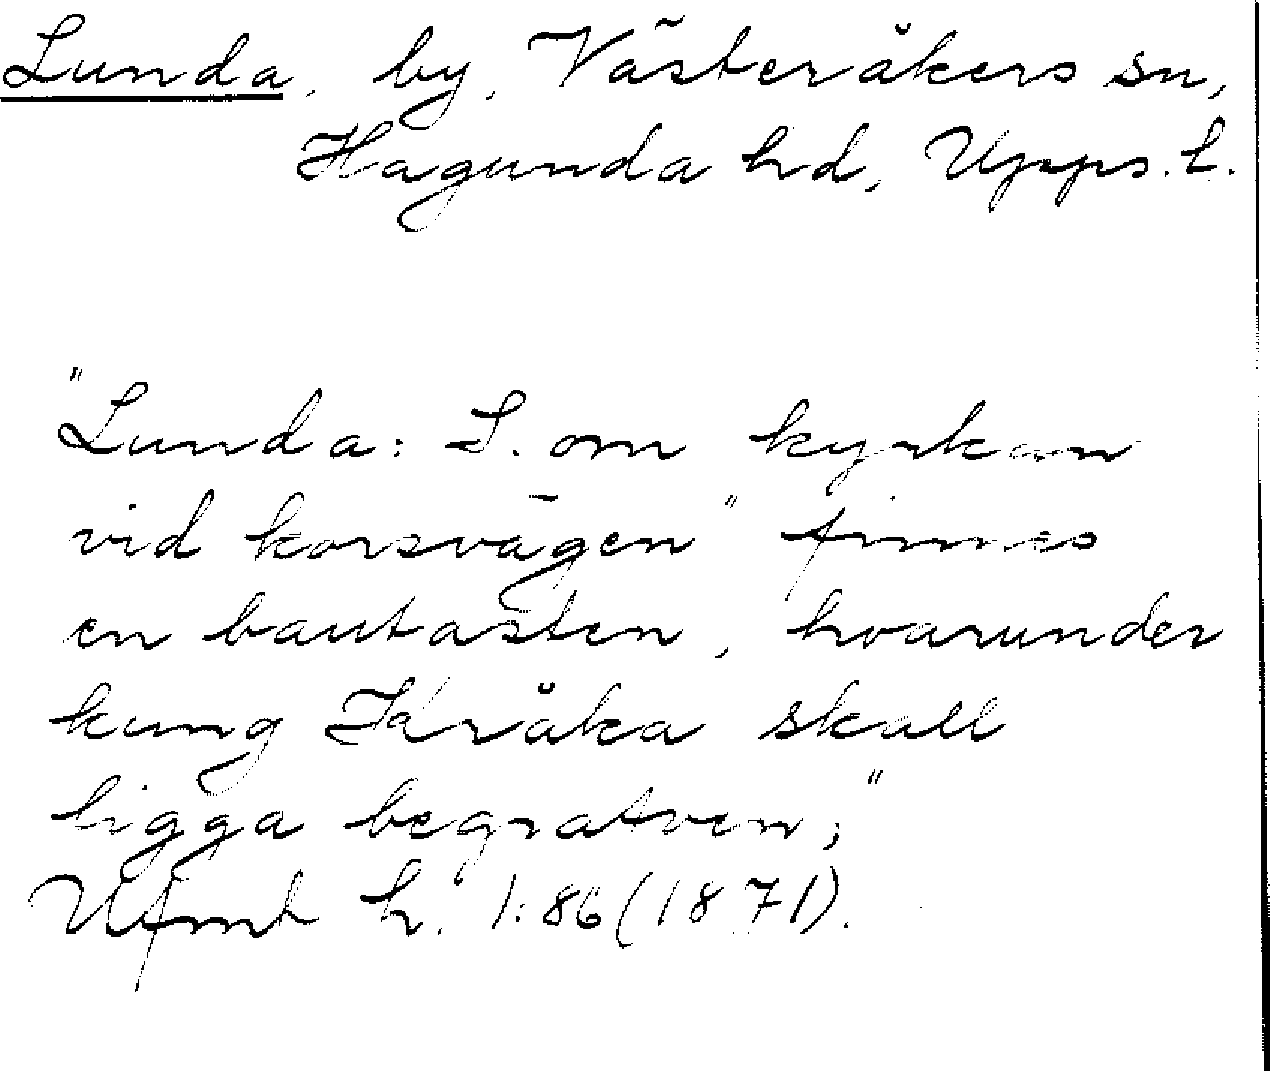 Lunda, by, Västeråkers sn,
Hagunda hd, Upps. l.
"Lunda: S. om kyrkan
vid korsvägen" finnes
en bautasten, hvarunder
kung Kråka skall
ligga begrafven,"
Ufmt h. 1:86 (1871).